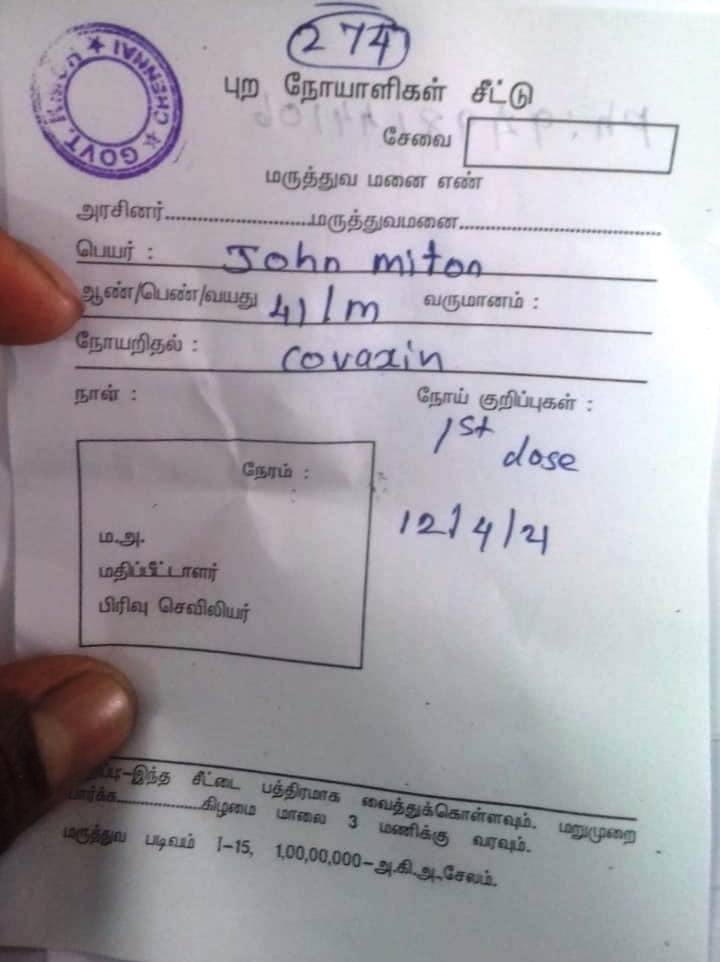 274
GOVT. CHENNAI
புற நோயாளிகள் சீட்டு
சேவை
மருத்துவ மனை எண்
அரசினர்............................மருத்துவமனை......................................
பெயர் : John miton
ஆண்/பெண்/வயது 41/m வருமானம் :
நோயறிதல் : covaxin
நாள் : நோய் குறிப்புகள் :
1st dose
நேரம் :
12/4/21
ம.அ.
மதிப்பீட்டாளர்
பிரிவு செவிலியர்
இந்த சீட்டை பத்திரமாக வைத்துக்கொள்ளவும். மறுமுறை
பார்க்க..................கிழமை மாலை 3 மணிக்கு வரவும்.
மருத்துவ படிவம் I-15, 1,00,00,000-அ.கி.அ.,சேலம்.